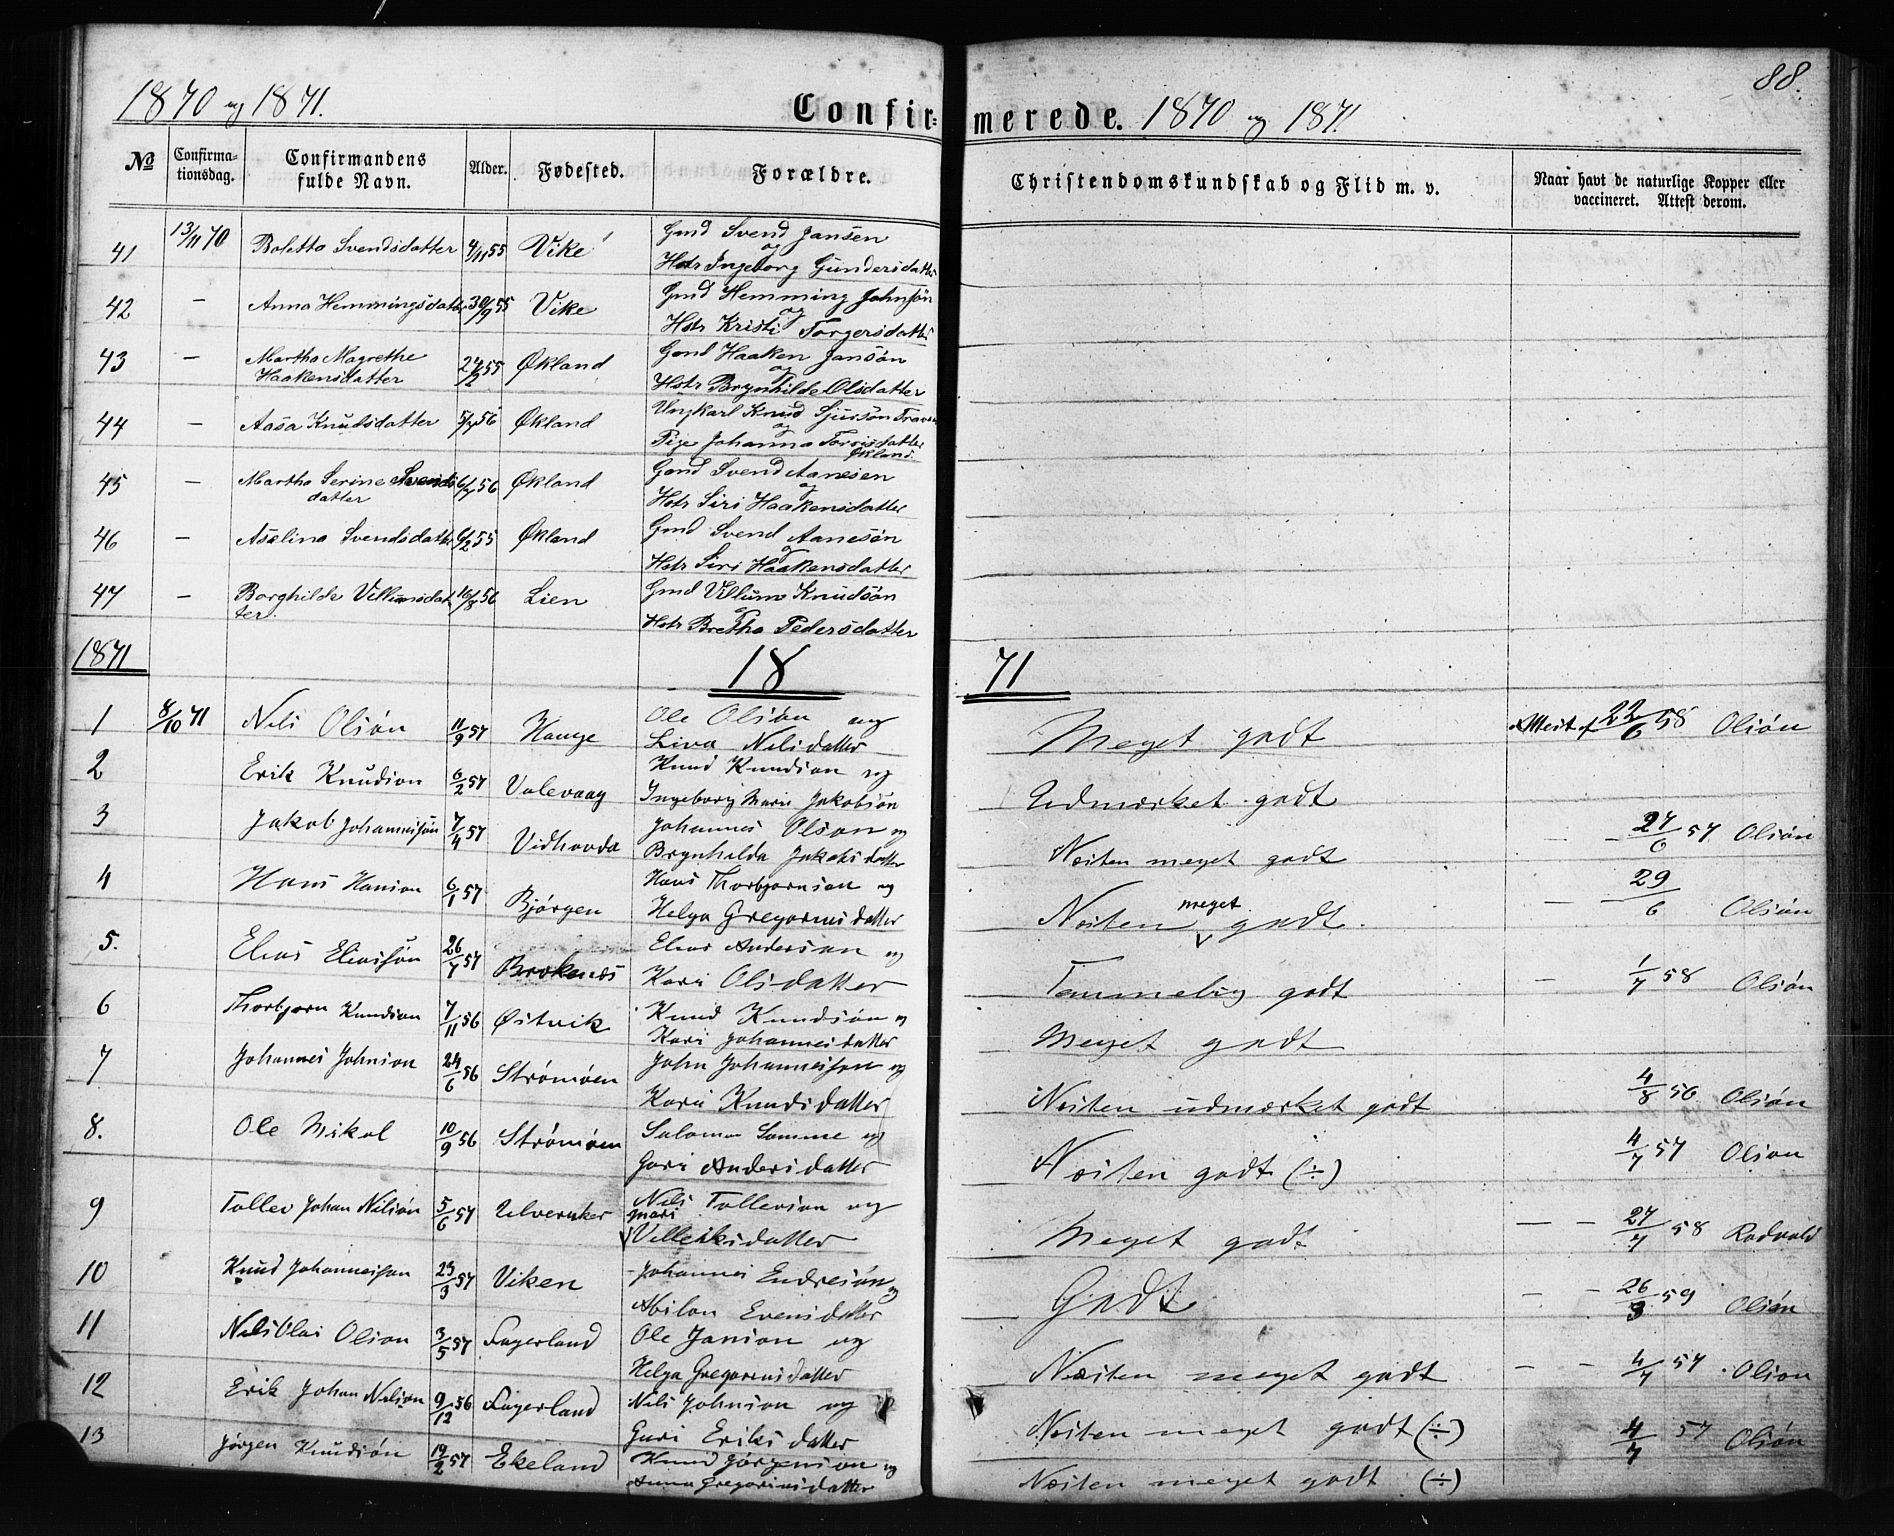 88.
1870 og 1871. Confirmerede. 1870 og 1871
№ Confirmationsdag. Confirmandens fulde Navn. Alder. Fødested. Forældre. Christendomskundskab og Flid m. v. Naar havt de naturlige Kopper eller vaccineret. Attest derom.
41 13/11 70 Boletta Svendsdatter 4/11 55 Vike Gmd Svend Jansen
og
Hstr Ingeborg Gundersdatter
42 — Anna Hemmingsdatter 30/9 55 Vike Gmd Hemming Johnsön
og
Hstr Kristi Torgersdatter
43 — Martha Magrethe Haakensdatter 55 Økland Gmd Haaken Jansön
og
Hstr Brynhilde Olsdatter
44 — Aasa Knudsdatter 56 Økland Ungkarl Knud Sjursön
og
Pige Johanna Torrisdatter
Økland.
45 — Martha Serine Svends datter 56 Økland Gmd Svend Aanesen
og
Hstr Siri Haakensdatter
46 — Aselina Svendsdatter 6/2 55 Økland Gmd Svend Aanesön
og
Hstr Siri Haakensdatter
47 — Borghilde Villumsdatter. 16/8 56 Lien Gmd Villum Knudsön
og
Hstr Bretha Pedersdatter
1871 1871
1 8/10 71 Nels Olsön 11/9 57 Hauge Ole Olsön og
Liva Nelsdatter Meget godt Attest af 22/6 58 Olsön
2 Erik Knudson 6/2 57 Valevaag Knud Knudson og
Ingeborg Marie Jakobsön Udmærket godt
3 Jakob Johannesön 7/4 57 Vidhovda Johannes Olson og
Brynhilda Jakobsdatter Næsten meget godt — — 27/6 57 Olsön
4 Hans Hanson 6/1 57 Bjørgen Hans Thorbjornson og
Helga Gregoriusdatter Næsten meget godt. — — 29/6 Olsön
5. Elias Eliasson 26/7 57 Brokenæs Elias Anderson og
Kari Olsdatter Temmelig godt — 1/7 58 Olsön
6 Thorbjorn Knudson 7/11 56 Østvik Knud Knudsön og
Kari Johannesdatter Meget godt
7 Johannes Johnson 24/6 56 Strömöen John Johannesson og
Kari Knudsdatter Næsten udmærket godt 4/8 56 Olsön
8. Ole Mikal 10/9 56 Strömöen Salomon Somme og
Guri Andersdatter Næsten godt (÷) 4/7 57 Olson
9 Tollev Johan Nilsön 5/6 57 Ulveraker Nils Tollevson og
Mari Villeiksdatter Meget godt — — 27/7 58 Rodvold
10 Knud Johannesson 29/3 57 Viken Johannes Endresön og
Abilon Evensdatter Godt — — 26/3 59 Olsön
11 Nels Olai Olson 3/5 57 Fagerland Ole Janson og
Helga Gregoriusdatter Næsten meget godt — — 4/7 57 Olson
12 Erik Johan Nelson 9/12 56 Fagerland Nils Johnson og
Guri Eriksdatter Næsten meget godt (÷) 4/7 57 Olsön
13 Jörgen Knudsön 19/2 57 Ekeland Knud Jörgenson og
Anna Gregoriusdatter Næsten meget godt (÷)